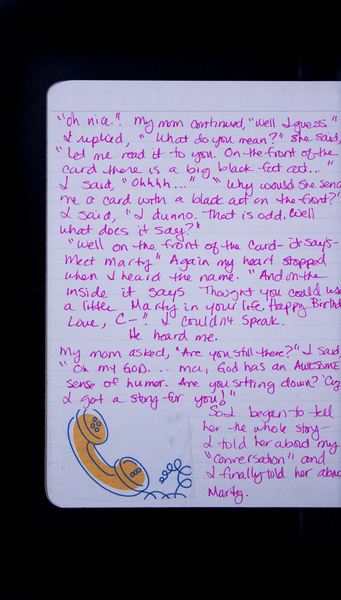 "Oh nice." My mom continued, "Well I guess"
I replied, "What do you mean?" She said,
"Let me read it to you. On the front of the
card there is a big black fat cat..."
I said, "Ohhhh..." "Why would she send
me a card with a black cat on the front?"
I said, "I dunno. That is odd. Well
what does it say?"
"Well on the front of the card it says-
Meet Marty." Again my heart stopped
when I heard the name. "And on the
inside it says Thought you could use
a little Marty in your life. Happy Birthd
Love, C-" I couldn't speak.
He heard me.
My mom asked, "Are you still there?" I said,
"Oh my GOD.... ma, God has an AWESOME
sense of humor. Are you sitting down? 'Coz
I got a story for you!"
So I began to tell
her the whole story-
I told her about my
"conversation" and
I finally told her abou
Marty.